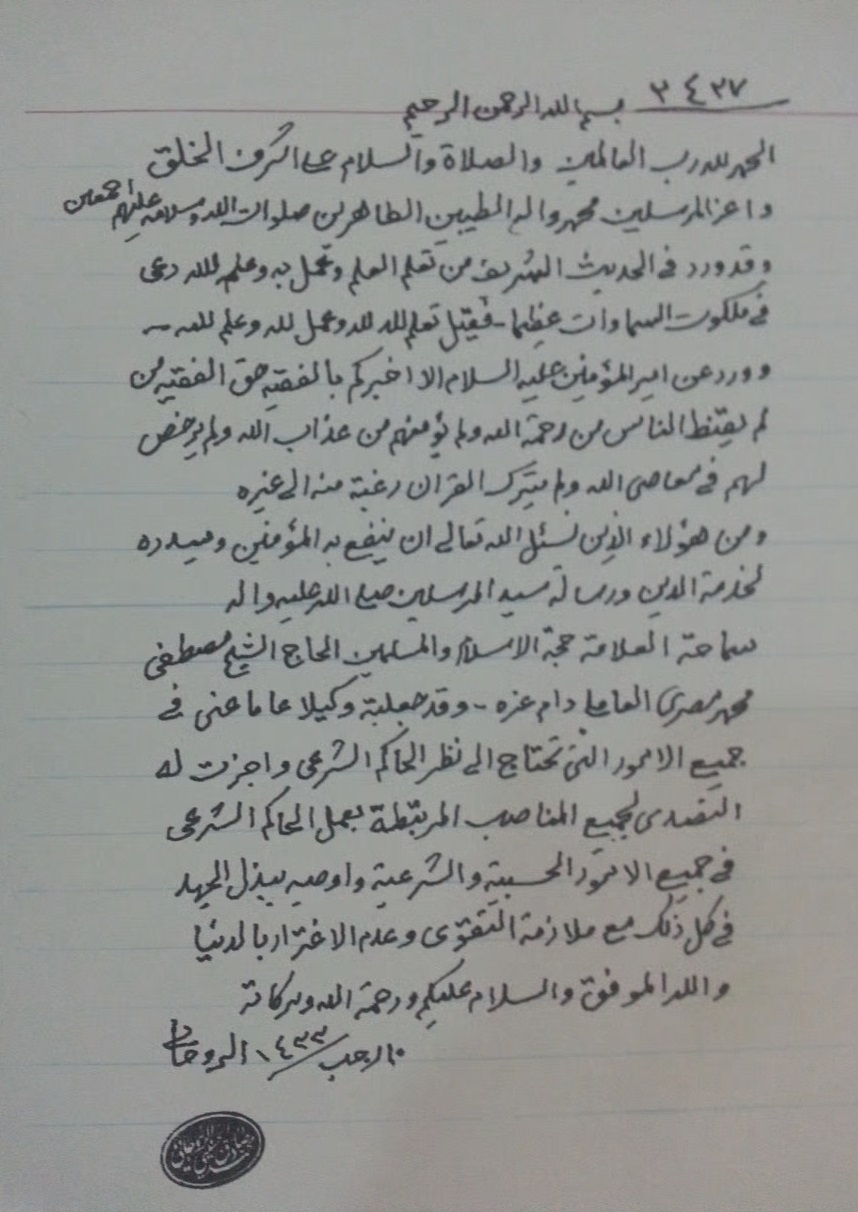 ٣٤٢٧
بسم الله الرحمن الرحيم
الحمد لله رب العالمين والصلاة والسلام على اشرف الخلق
واعز المرسلين محمد واله الطيبين الطاهرين صلوات الله وسلامه عليهم اجمعين
وقد ورد في الحديث الشريف من تعلم العلم وعمل به وعلم لله دعى
في ملكوت السماوات عظيما - فيقتل تعلم لله وعمل لله وعلم لله -
وورد عن امير المؤمنين عليه السلام الا اخبركم بالفقيه حق الفقيه من
لم يقنط الناس من رحمة الله ولم يؤمنهم من عذاب الله ولم يرخص
لهم في معاصى الله ولم يترك القران رغبة منه الى غيره
ومن هؤلاء الذين نسئل الله تعالى ان ينفع به المؤمنين ويسدده
لخدمة الدين ورسالة سيد المرسلين صلى الله عليه واله
سماحة العلامة حجة الاسلام والمسلمين الحاج الشيخ مصطفى
محمد مصرى العاملى دام عزه - وقد جعلته وكيلا عاما عنى في
جميع الامور التى تحتاج الى نظر الحاكم الشرعى واجزت له
التصدى لجميع المناصب المرتبطة بعمل الحاكم الشرعى
في جميع الامور الحسبية والشرعية واوصيه ببذل الجهد
في كل ذلك مع ملازمة التقوى وعدم الاغترار بالدنيا
والله الموفق والسلام عليكم ورحمة الله وبركاته
رجب ١٤٣٣ الروحانى